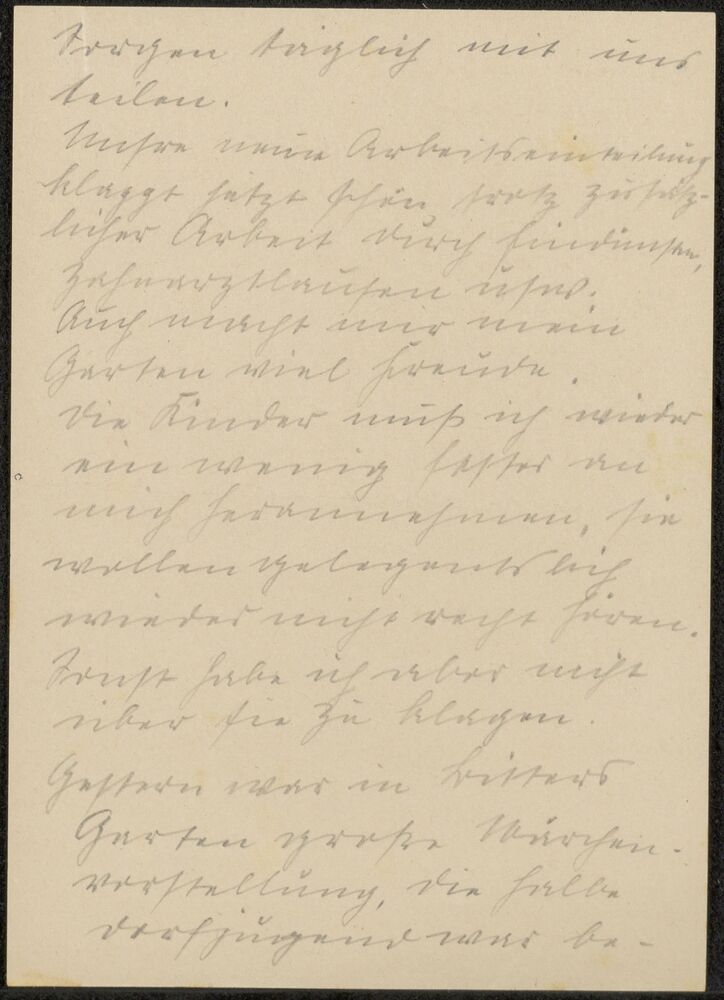 Sorgen täglich mit uns
teilen.
Unsre neue Arbeitseinteilung
klappt jetzt schön trotz zusätz-
licher Arbeit durch
Zahnarztlaufen usw.
Auch macht mir mein
Garten viel Freude.
Die Kinder muß ich wieder
ein wenig fester an
mich herannehmen, sie
wollen gelegentlich
wieder nicht recht hören.
Sonst habe ich aber nicht
über sie zu klagen.
Gestern war in Bitters
Garten große Märchen-
vorstellung, die halbe
Dorfjugend war be-